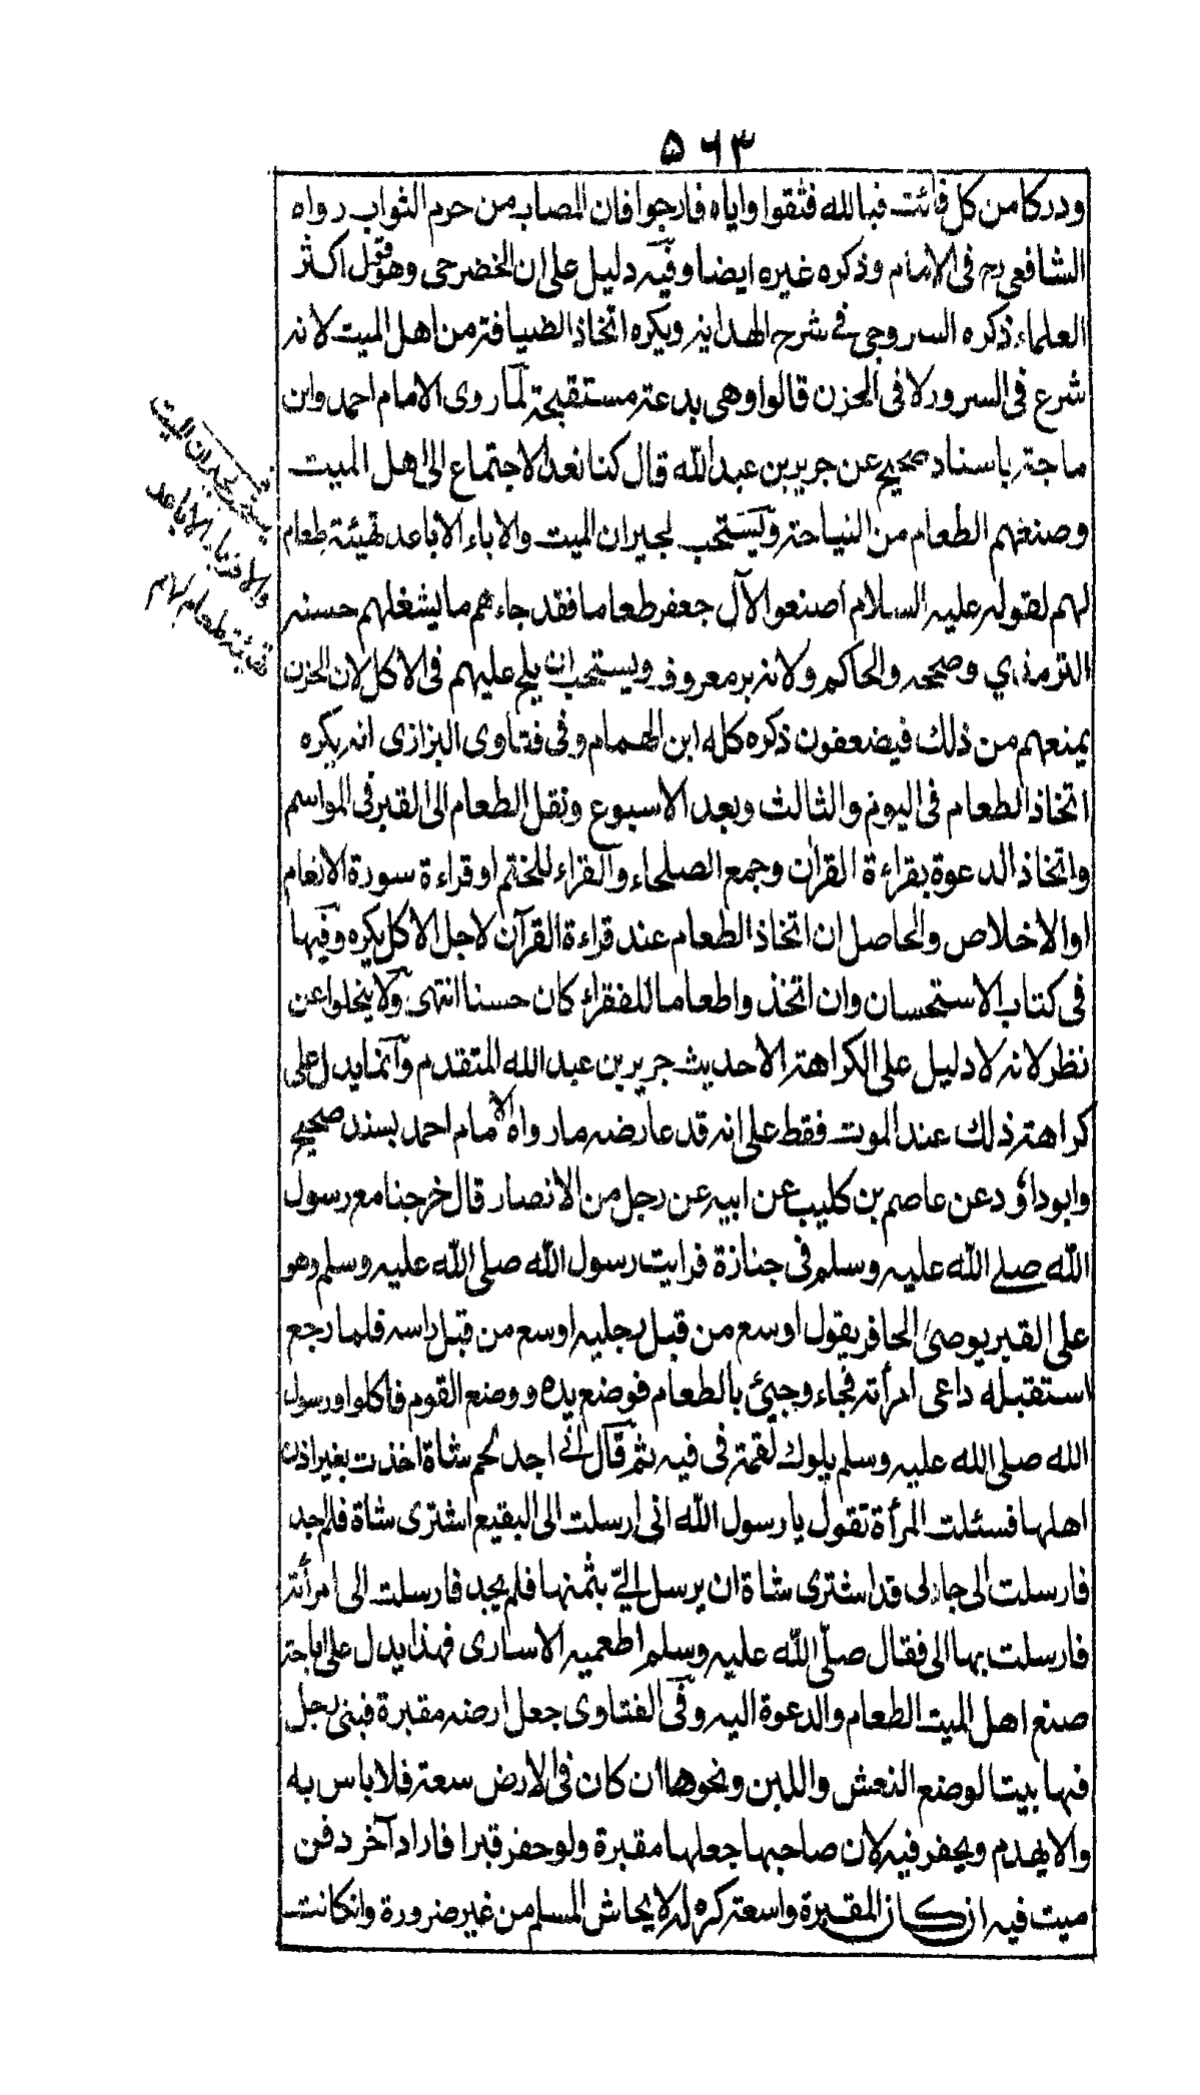 ۵۶۳
ودركا من كل فائت فبالله فثقوا واياه فارجوا فان المصاب من حرم الثواب رواه
الشافعى رح فى الامام وذكره غيره ايضا وفيه دليل على ان الخضر حى وهو قول اكثر
العلماء ذكره السروجى فى شرح الهداية ويكره اتخاذ الضيافة من اهل الميت لانه
شرع فى السرور لا فى الحزن قالوا وهى بدعة مستقبحة لما روى الامام احمد وابن
ماجة باسناد صحيح عن جرير بن عبد الله قال كنا نعد الاجتماع الى اهل الميت
وصنعهم الطعام من النياحة ويستحب لجيران الميت والاباء الاباعد تهيئة طعام
لهم لقوله عليه السلام اصنعوا لآل جعفر طعاما فقد جاءهم ما يشغلهم حسنه
الترمذي وصححه والحاكم ولانه بر معروف ويستحب ان يلح عليهم فى الاكل لان الحزن
يمنعهم من ذلك فيضعفون ذكره كله ابن الهمام وفى فتاوى البزازى انه يكره
اتخاذ الطعام فى اليوم والثالث وبعد الاسبوع ونقل الطعام الى القبر فى المواسم
واتخاذ الدعوة بقراءة القرآن وجمع الصلحاء والقراء للختم او قراءة سورة الانعام
او الاخلاص والحاصل ان اتخاذ الطعام عند قراءة القرآن لاجل الاكل يكره وفيها
فى كتاب الاستحسان وان اتخذ واطعاما للفقراء كان حسنا انتهى ولا يخلوا عن
نظر لانه لا دليل على الكراهة الا حديث جرير بن عبد الله المتقدم وانما يدل على
كراهة ذلك عند الموت فقط على انه قد عارضه ما رواه الامام احمد بسند صحيح
وابو داؤد عن عاصم بن كليب عن ابيه عن رجل من الانصار قال خرجنا مع رسول
الله صلى الله عليه وسلم فى جنازة فرايت رسول الله صلى الله عليه وسلم وهو
على القبر يوصى الحافر يقول اوسع من قبل رجليه اوسع من قبل راسه فلما رجع
استقبله داعى امرأته فجاء وجيئ بالطعام فوضع يده ووضع القوم فاكلوا ورسول
الله صلى الله عليه وسلم يلوك لقمة فى فيه ثم قال انى اجد لحم شاة اخذت بغير اذن
اهلها فسئلت المرأة تقول يا رسول الله انى ارسلت الى البقيع اشترى شاة فلم اجد
فارسلت الى جار لى قد اشترى شاة ان يرسل الىّ بثمنها فلم يجد فارسلت الى امرأته
فارسلت بها الى فقال صلى الله عليه وسلم اطعميه الاسارى فهذا يدل على اباحة
صنع اهل الميت الطعام والدعوة اليه وفى الفتاوى جعل ارضه مقبرة فبنى رجل
فيها بيتا لوضع النعش واللبن ونحوها ان كان فى الارض سعة فلا باس به
والا يهدم ويحفر فيه لان صاحبها جعلها مقبرة ولو حفر قبرا فاراد آخر دفن
ميت فيه ان كان المقبرة واسعة كره له لا يحاش المسلم من غير ضرورة وانكانت
يستحب لجيران الميت
والاقرباء الاباعد
تهيئة طعام لهم